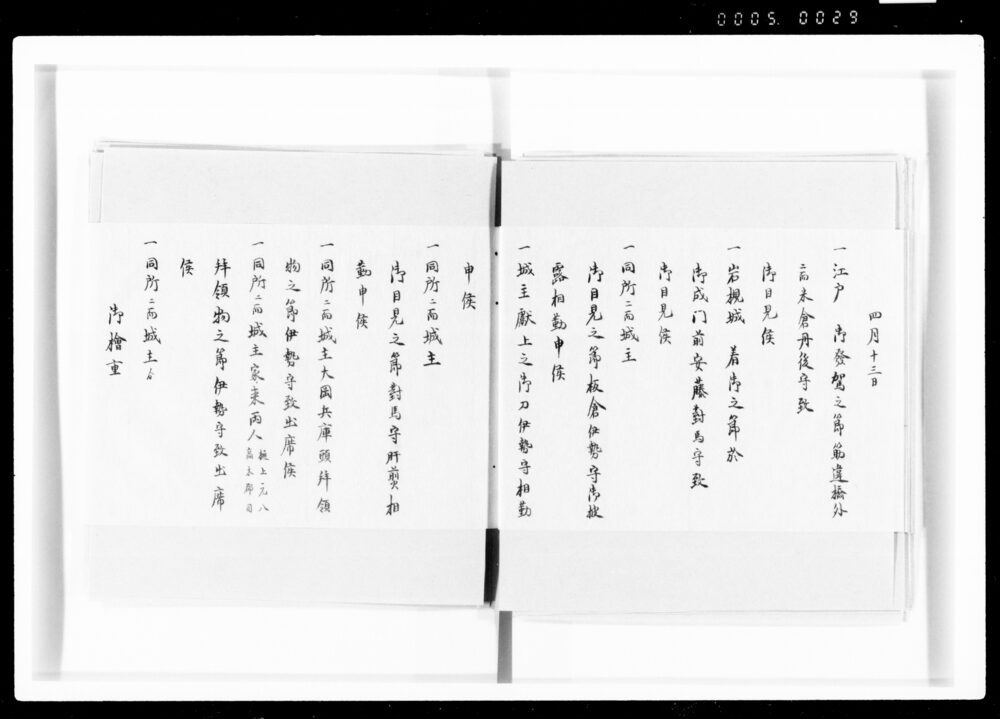 0005. 0029
四月十三日
一江戸 御發駕之節筋違橋外
二而米倉丹後守致
御目見候
一岩槻城 着御之節於
御成門前安藤對馬守致
御目見候
一同所二而城主
御目見之節板倉伊勢守御披
露相勤申候
一城主獻上之御刀伊勢守相勤
申候
一同所二而城主
御目見之節對馬守肝煎相
勤申候
一同所二而城主大岡兵庫頭拜領
物之節伊勢守致出席候
一同所二而城主家来両人
拜領物之節伊勢守致出席
候
一同所二而城主ゟ
御檜重